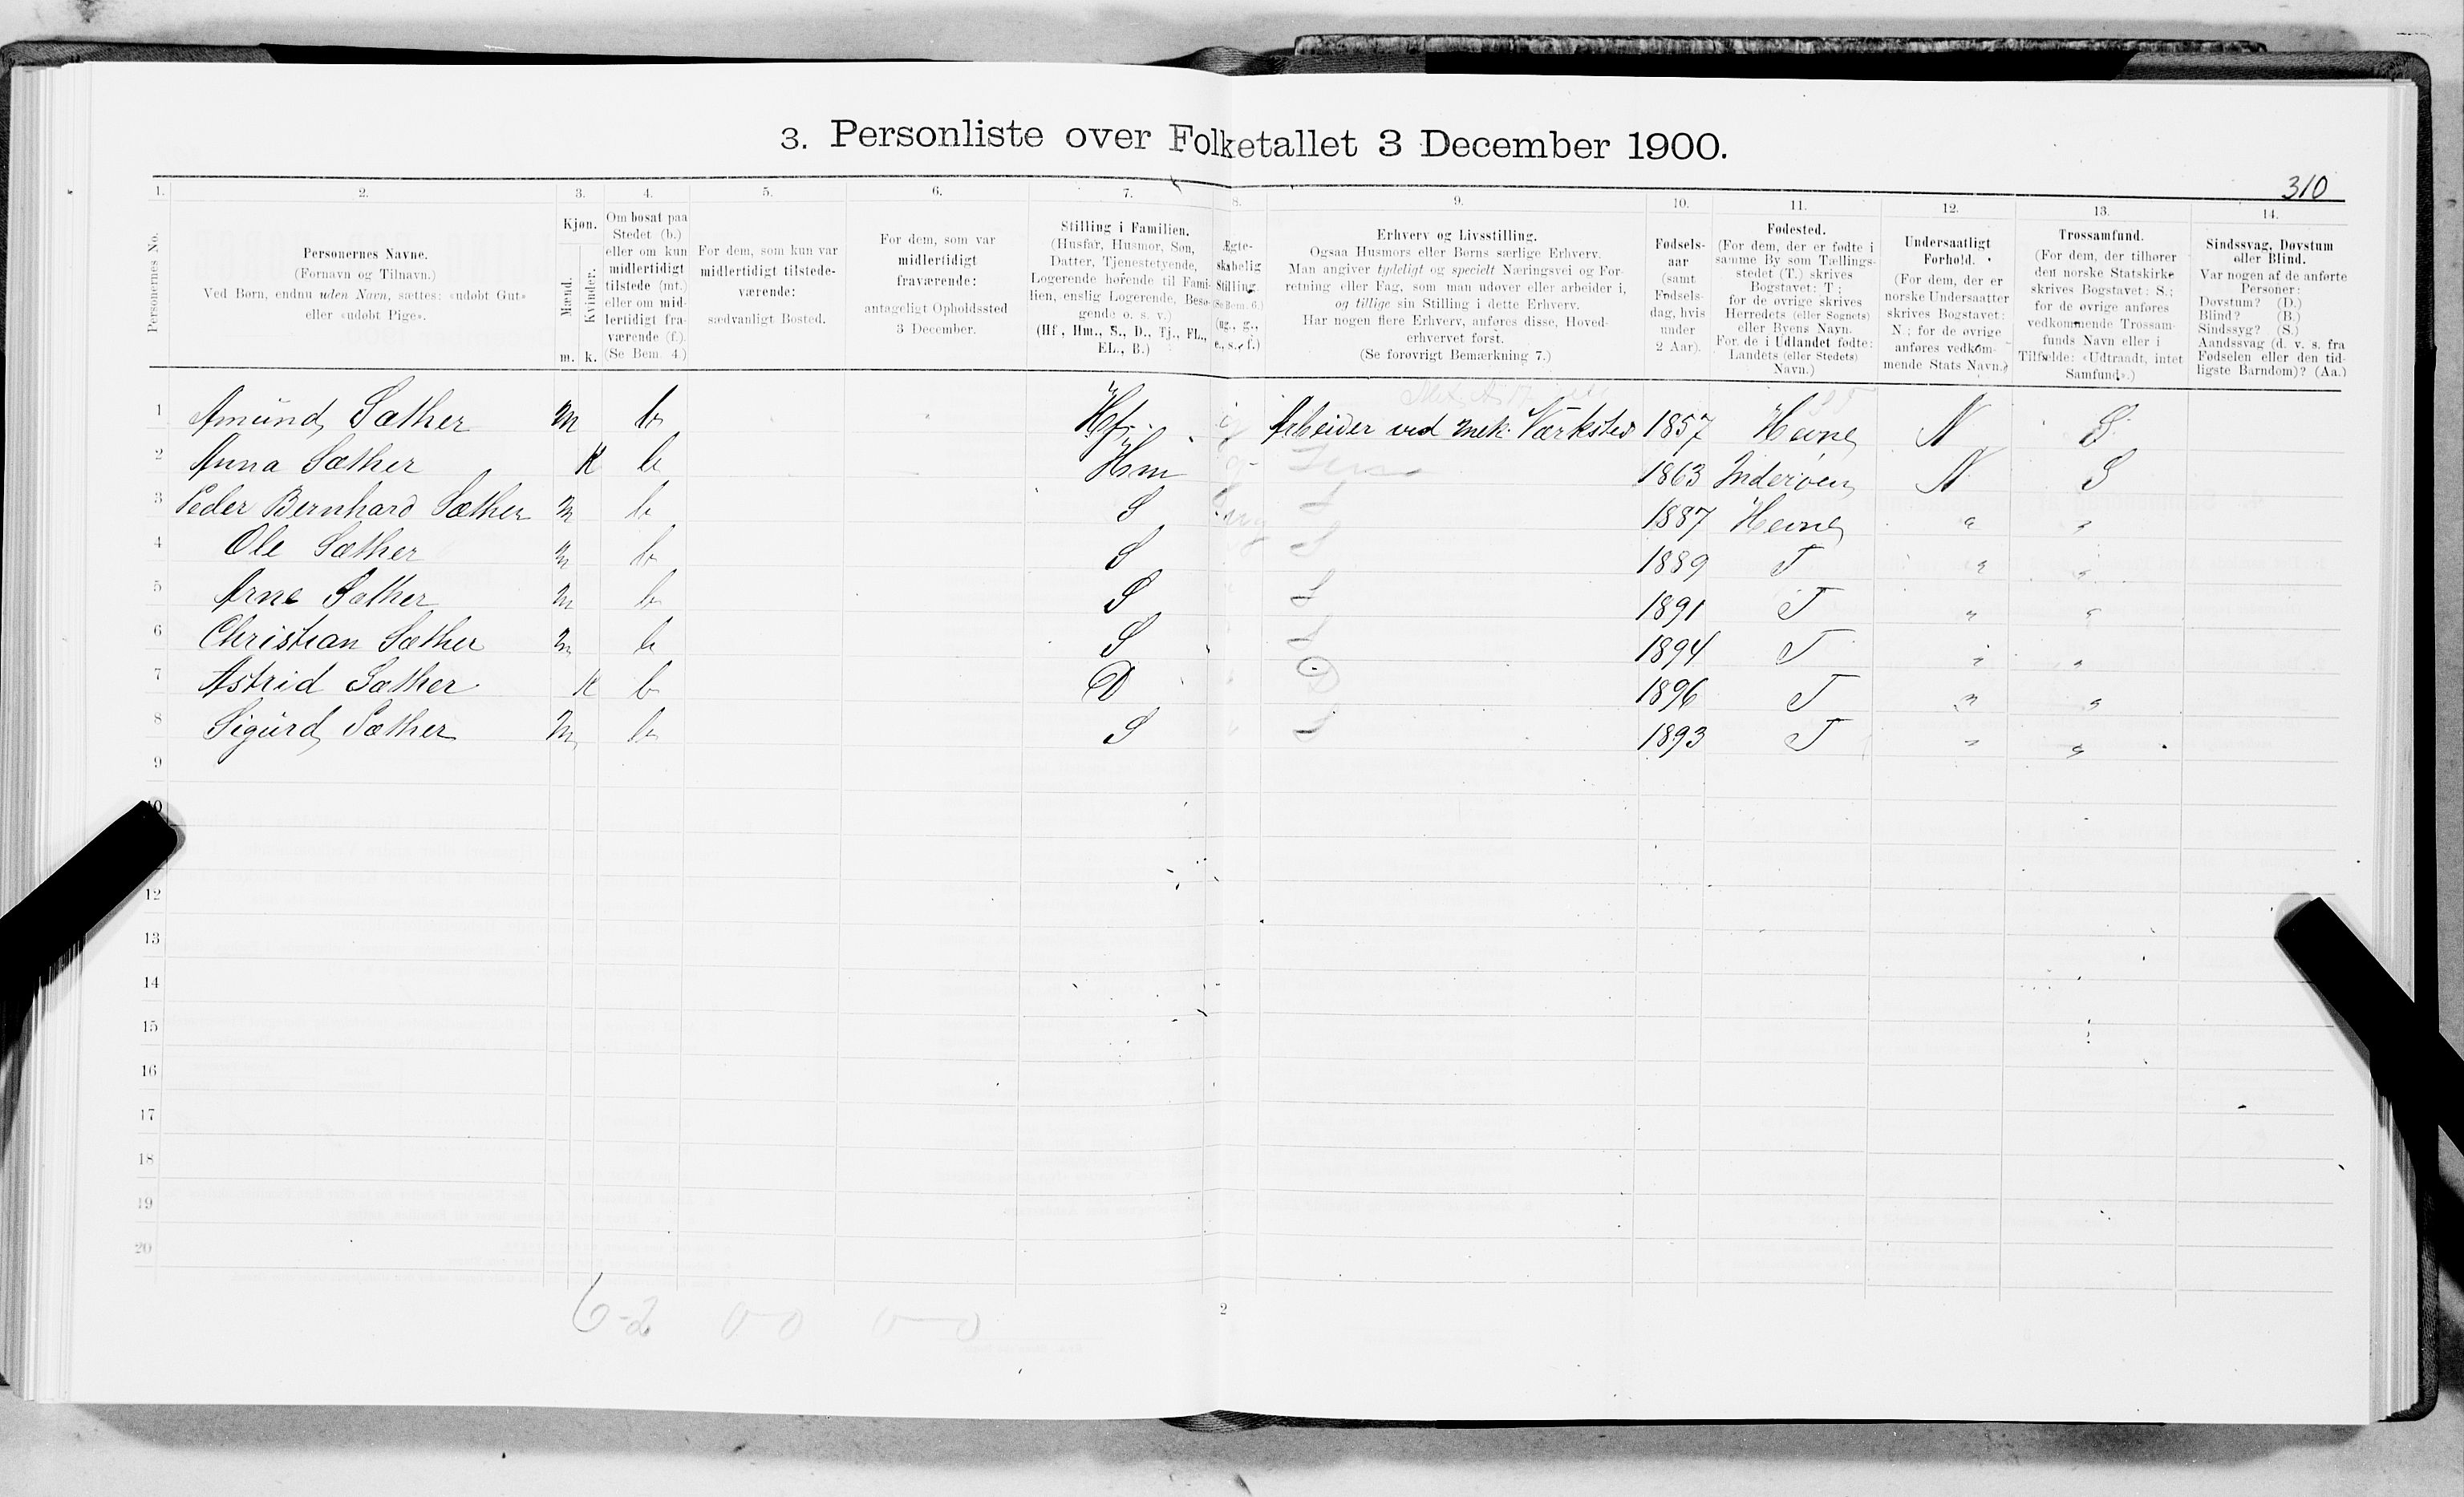 3. Personliste over Folketallet 3 December 1900.
310
1. 2. 3. 4. 5. 6. 7. 8. 9. 10. 11. 12. 13. 14.
Personernes No.
Personernes Navne.
(Fornavn og Tilnavn.)
Ved Børn, endnu uden Navn, sættes: «udøbt Gut»
eller «udøbt Pige».
Kjøn.
Mænd.
Kvinder.
m. k.
Om bosat paa
Stedet (b.)
eller om kun
midlertidigt
tilstede (mt.)
eller om mid-
lertidigt fra-
værende (f.).
(Se Bem. 4.)
For dem, som kun var
midlertidigt tilstede-
værende:
sædvanligt Bosted.
For dem, som var
midlertidigt
fraværende:
antageligt Opholdssted
3 December.
Stilling i Familien.
(Husfar, Husmor, Søn,
Datter, Tjenestetyende,
Logerende hørende til Fami-
lien, enslig Logerende, Besø-
gende o. s. v.)
(Hf., Hm., S., D., Tj., FL.,
EL., B.)
Ægte-
skabelig
Stilling.
(Se Bem. 6.)
(ug., g.,
e., s., f.)
Erhverv og Livsstilling.
Ogsaa Husmors eller Børns særlige Erhverv.
Man angiver tydeligt og specielt Næringsvei og For-
retning eller Fag, som man udøver eller arbeider i,
og tillige sin Stilling i dette Erhverv.
Har nogen flere Erhverv, anføres disse, Hoved-
erhvervet først.
(Se forøvrigt Bemærkning 7.)
Fødsels-
aar
(samt
Fødsels-
dag, hvis
under
2 Aar).
Fødested.
(For dem, der er fødte i
samme By som Tællings-
stedet (T.) skrives
Bogstavet: T;
for de øvrige skrives
Herredets (eller Sognets)
eller Byens Navn.
For de i Udlandet fødte:
Landets (eller Stedets)
Navn.)
Undersaatligt
Forhold.
(For dem, der er
norske Undersaatter
skrives Bogstavet:
N.; for de øvrige
anføres vedkom-
mende Stats Navn.)
Trossamfund.
(For dem, der tilhører
den norske Statskirke
skrives Bogstavet: S.;
for de øvrige anføres
vedkommende Trossam-
funds Navn eller i
Tilfælde: «Udtraadt, intet
Samfund».)
Sindssvag, Døvstum
eller Blind.
Var nogen af de anførte
Personer:
Døvstum? (D.)
Blind? (B.)
Sindssyg? (S.)
Aandssvag (d. v. s. fra
Fødselen eller den tid-
ligste Barndom)? (Aa.)
1 Amund Sæther m b Hf. g Arbeider ved mek. Værksted 1857 Hevne N S
2 Anna Sæther K b Hm g 1863 Inderøen N S
3 Peder Bernhard Sæther m b S ug S 1887 Hevne " "
4 Ole Sæther m b S S 1889 T " "
5 Arne Sæther m b S S 1891 T " "
6 Christian Sæther m b S S 1894 T " "
7 Astrid Sæther K b D D 1896 T " "
8 Sigurd Sæther m b S S 1893 T " "
9
10
12
13
14
15
16
17
18
19
20
6-2 0-0 0-0
2